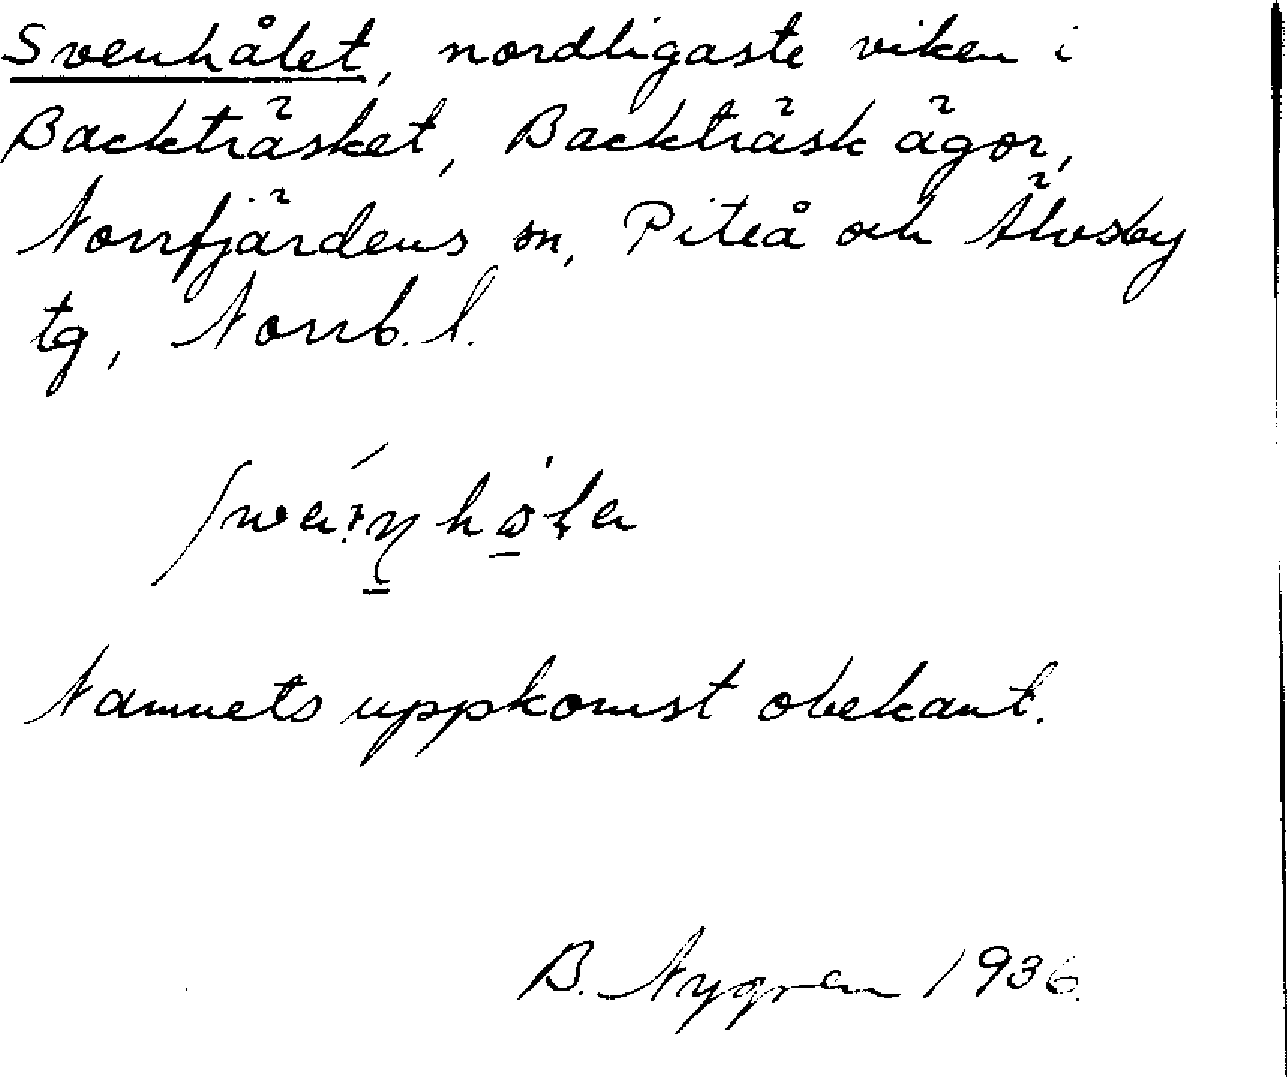 Svenhålet, nordligaste viken i
Backträsket, Backträsk ägor,
Norrfjärdens sn, Piteå och Älvsby
tg, Norrb. l.
Namnets uppkomst obekant.
B. Nygren 1936.